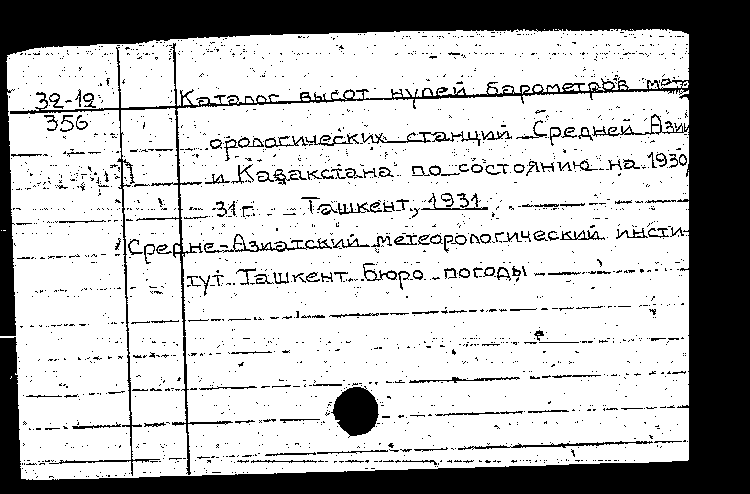 32-12
356
Каталог высот нулей барометров мете
орологических станций Средней Азии
и Казакстана по состоянию на 1930/
31 г. Ташкент, 1931.
Средне-Азиатский метеорологический инсти-
тут Ташкент Бюро погоды